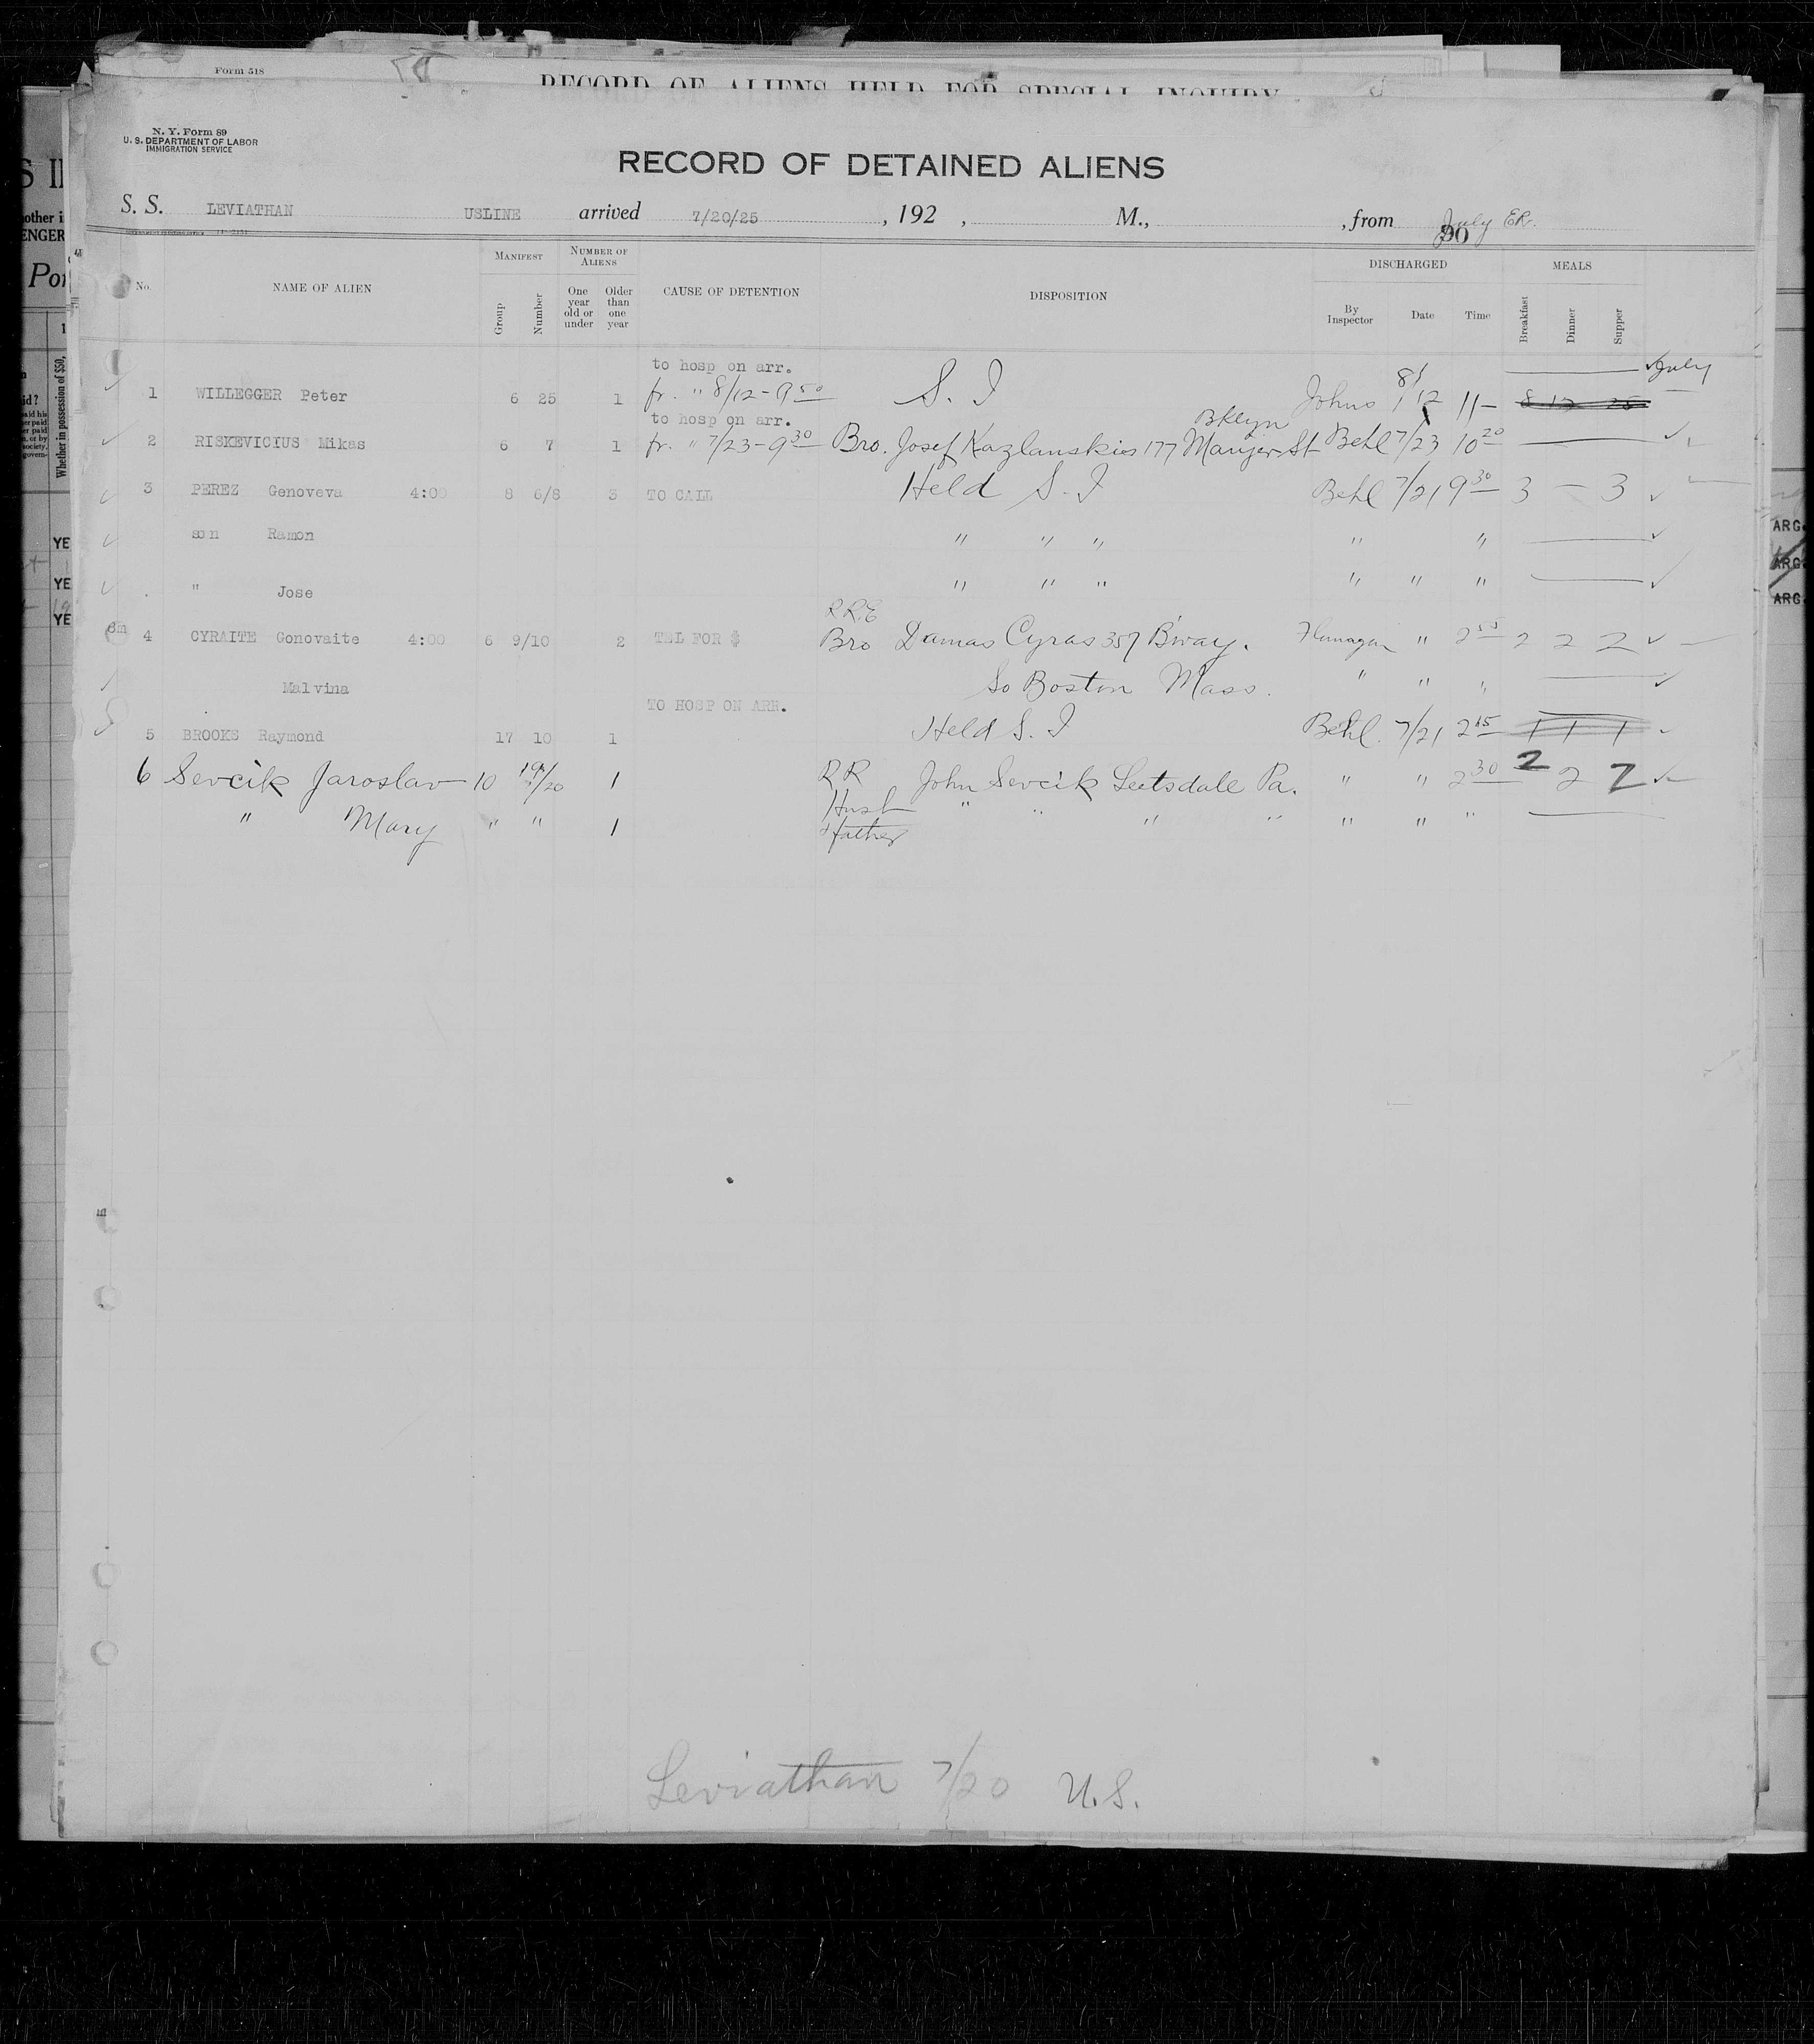 Form 518
RECORD OF ALIENS HELD FOR SPECIAL INQUIRY
N. Y. Form 89
U. S. DEPARTMENT OF LABOR
IMMIGRATION SERVICE
RECORD OF DETAINED ALIENS
S. S. LEVIATHAN USLINE arrived 7/20/25 , 192 , M., , from July ER.
90
No. NAME OF ALIEN MANIFEST Group Number NUMBER OF ALIENS One year old or under Older than one year CAUSE OF DETENTION DISPOSITION DISCHARGED By Inspector Date Time MEALS Breakfast Dinner Supper
to hosp on arr. July
1 WILLEGGER Peter 6 25 1 fr. " 8/12-9 50 S. I Johns 8/12 11-
to hosp on arr. Bklyn
2 RISKEVICIUS Mikas 6 7 1 fr. " 7/23-9 30 Bro. Josef Kazlanskios 177 Manjer St Behl 7/23 10 20
3 PEREZ Genoveva 4:00 8 6/8 3 TO CALL Held S. I Behl 7/21 9 30 3 - 3
son Ramon " " " " "
" Jose " " " " " "
RRE
4 CYRAITE Gonovaite 4:00 6 9/10 2 TEL FOR $ Bro Damas Cyras 357 B'way. Flanagan " 2 55 2 2 2
Malvina So Boston Mass. " " "
TO HOSP ON ARR.
5 BROOKS Raymond 17 10 1 Held S. I Behl. 7/21 2 15 1 1 1
6 Sevcik Jaroslav 10 19/20 1 RR John Sevcik Leetsdale Pa. " " 2 30 2 2 2
Husb
" Mary " " 1 Father " " " " " " "
Leviathan 7/20 U.S.